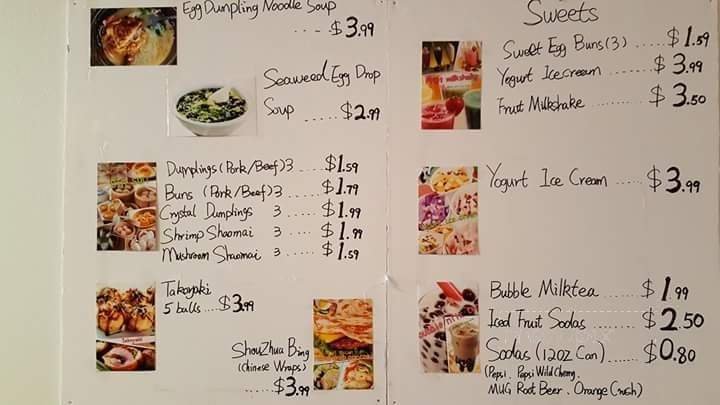 Egg Dumpling Noodle Soup
--- $3.99
Seaweed Egg Drop
Soup ..... $2.99
Dumplings (Pork/Beef) 3 ... $1.59
Buns (Pork/Beef) 3 .... $1.79
Crystal Dumplings 3 ..... $1.99
Shrimp Shaomai 3 .... $1.99
Mushroom Shaomai 3 .... $1.59
Takoyaki
5 balls .... $3.99
ShouZhua Bing
(Chinese Wraps)
..... $3.99
Sweets
Sweet Egg Buns (3) ..... $1.59
Yogurt Icecream ..... $3.99
Fruit Milkshake ........ $3.50
Yogurt Ice Cream ...... $3.99
Bubble Milktea ...... $1.99
Iced Fruit Sodas ...... $2.50
Sodas (12oz Can) ...... $0.80
(Pepsi, Pepsi Wild Cherry,
MUG Root Beer, Orange Crush)